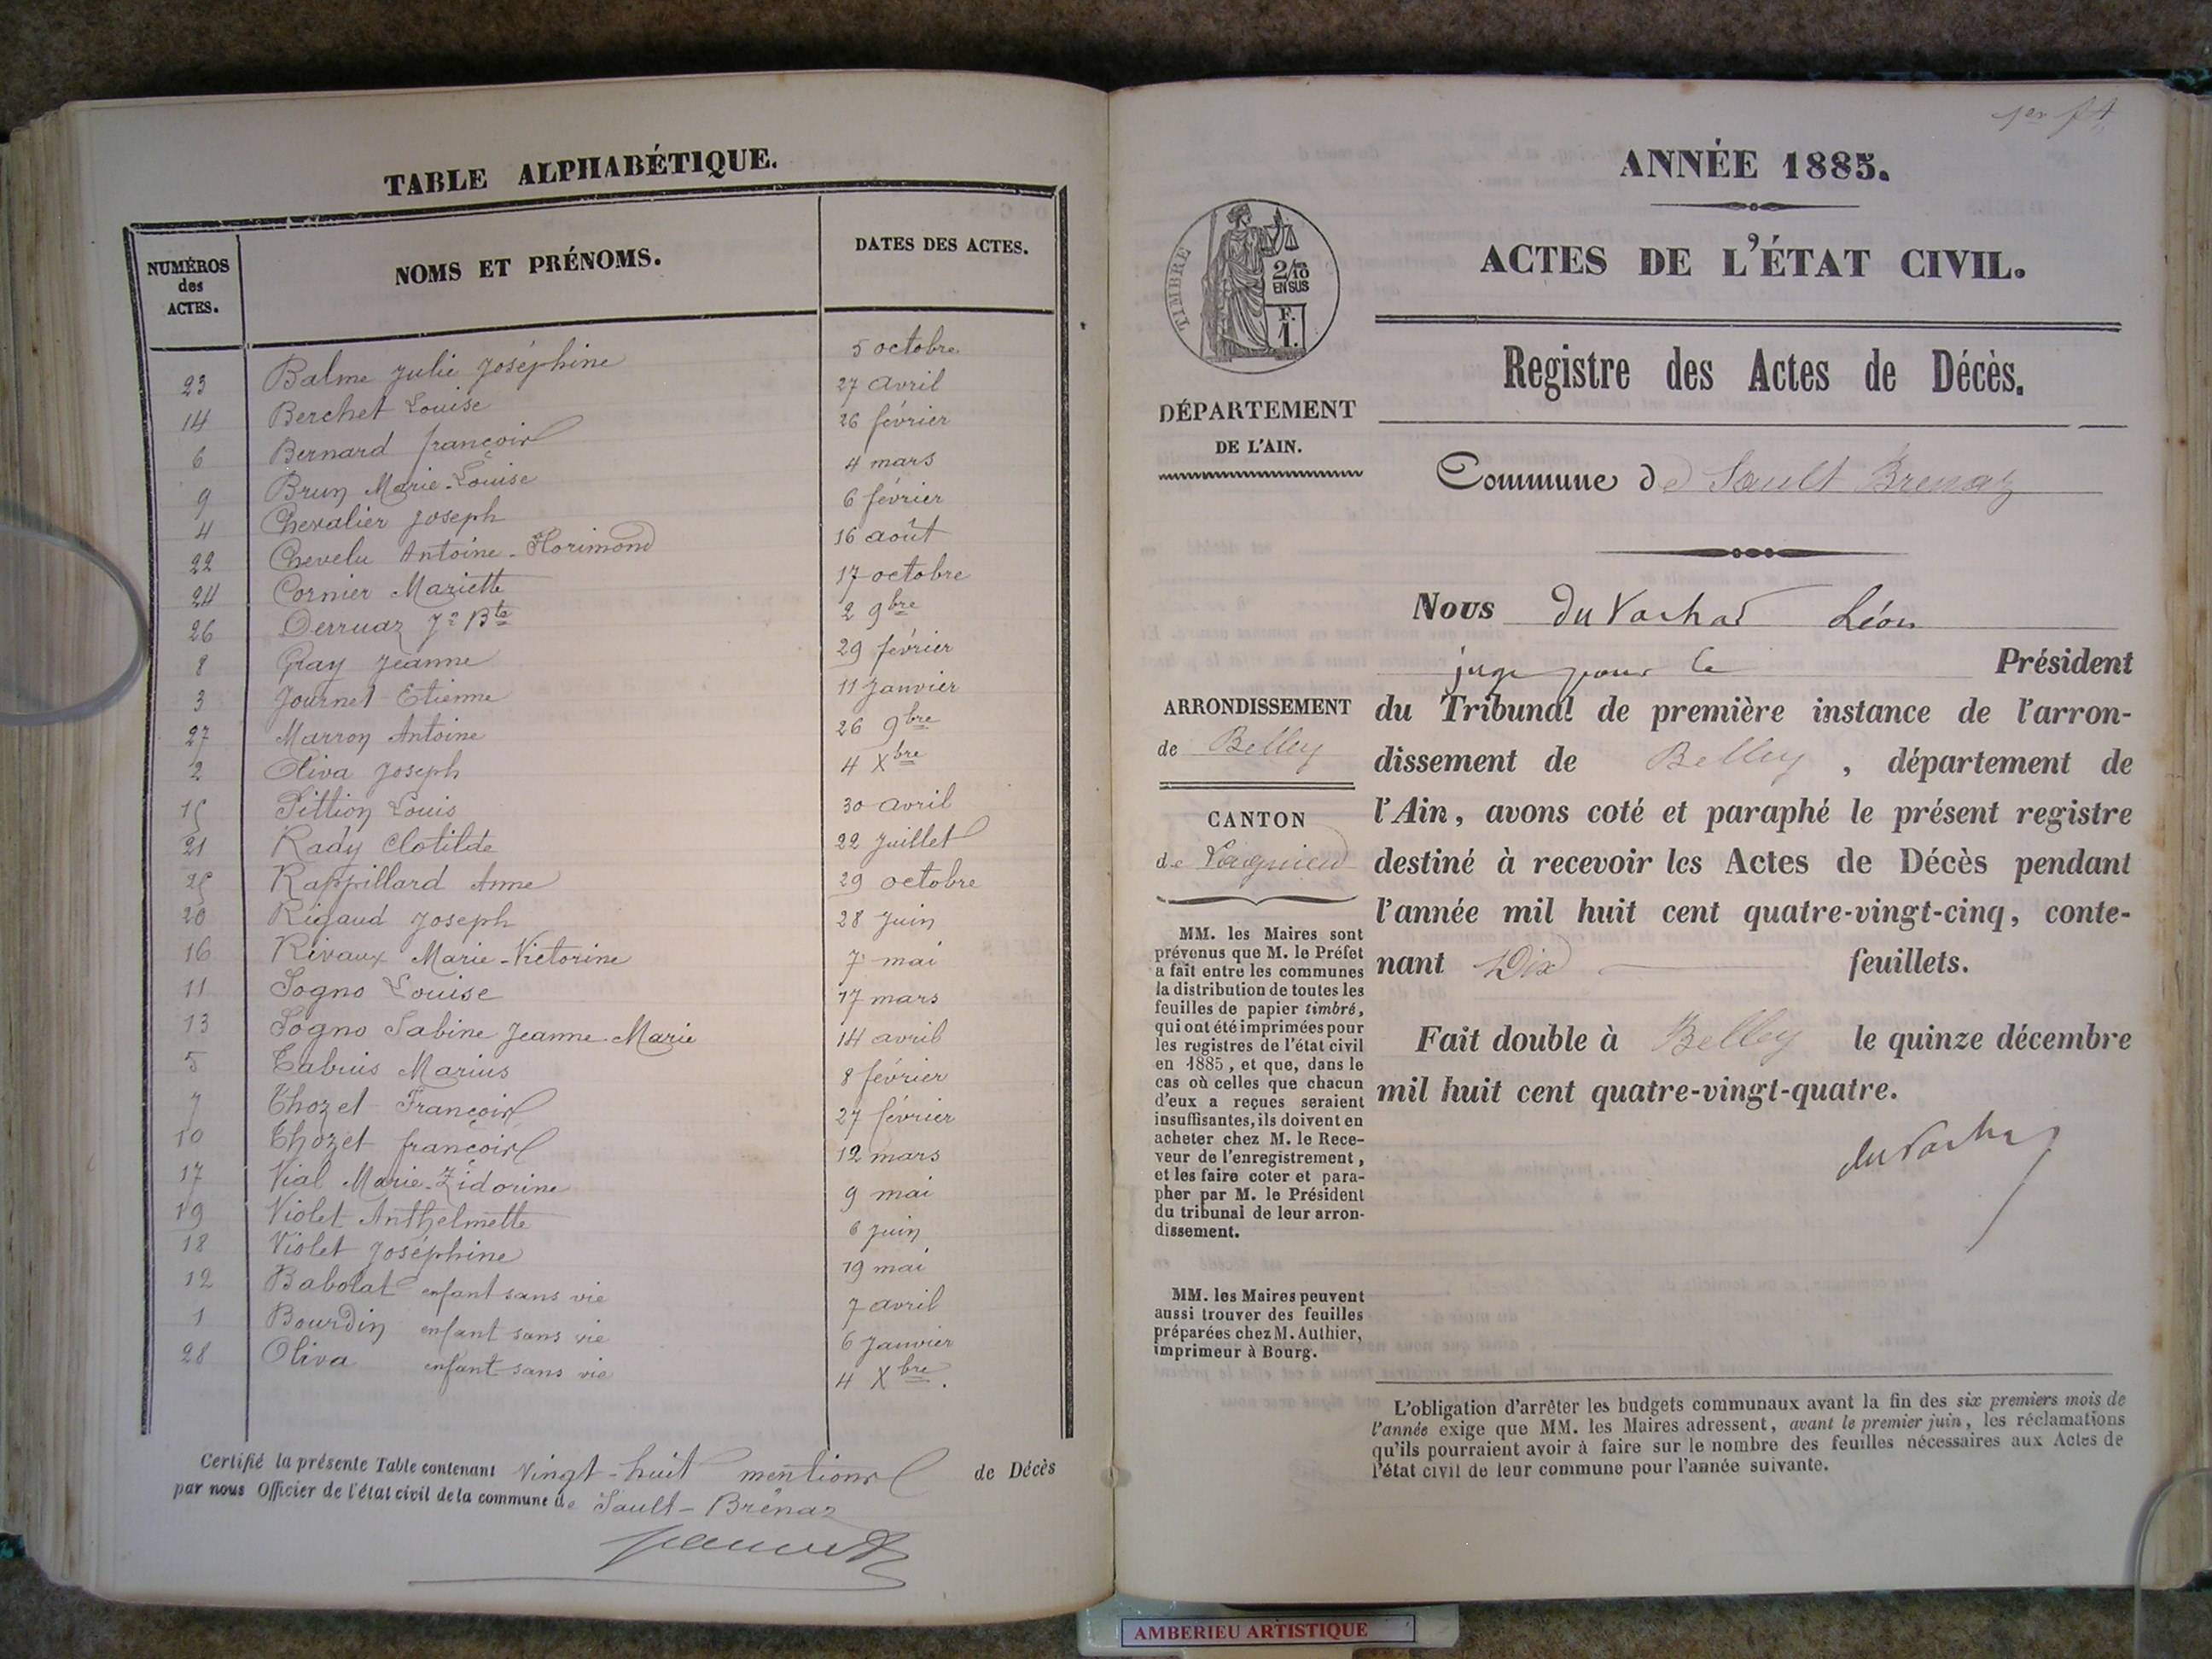 TABLE ALPHABÉTIQUE.
NUMÉROS des ACTES. NOMS ET PRÉNOMS. DATES DES ACTES.
23 Balme Julie Joséphine 5 octobre
14 Berchet Louise 27 avril
6 Bernard françois 26 février
9 Brun Marie-Louise 4 mars
4 Chevalier Joseph 6 février
22 Chevelu Antoine-Florimond 16 août
24 Cornier Mariette 17 octobre
26 Derruaz Jn Bte 2 9bre
8 Gray Jeanne 29 février
3 Journet Etienne 11 Janvier
27 Marron Antoine 26 9bre
2 Oliva Joseph 4 Xbre
15 Pittion Louis 30 avril
21 Rady Clotilde 22 Juillet
25 Rappillard Anne 29 octobre
20 Rigaud Joseph 28 Juin
16 Rivaux Marie-Victorine 7 mai
11 Sogno Louise 17 mars
13 Sogno Sabine Jeanne-Marie 14 avril
5 Tabuis Marius 8 février
7 Thozet François 27 février
10 Thozet françois 12 mars
17 Vial Marie-Zidorine 9 mai
19 Violet Anthelmette 6 Juin
18 Violet Joséphine 19 mai
12 Babolat enfant sans vie 7 avril
1 Bourdin enfant sans vie 6 Janvier
28 Oliva enfant sans vie 4 Xbre.
Certifié la présente Table contenant Vingt-huit mentions de Décès
par nous Officier de l'état civil de la commune de Sault-Brénaz
1er ft
ANNÉE 1885.
ACTES DE L'ÉTAT CIVIL.
Registre des Actes de Décès.
Commune de Sault Brenaz
TIMBRE
2/10 EN SUS
F.
1.
DÉPARTEMENT
DE L'AIN.
ARRONDISSEMENT
de Belley
CANTON
de Lagnieu
MM. les Maires sont
prévenus que M. le Préfet
a fait entre les communes
la distribution de toutes les
feuilles de papier timbré,
qui ont été imprimées pour
les registres de l'état civil
en 1885, et que, dans le
cas où celles que chacun
d'eux a reçues seraient
insuffisantes, ils doivent en
acheter chez M. le Rece-
veur de l'enregistrement,
et les faire coter et para-
pher par M. le Président
du tribunal de leur arron-
dissement.
MM. les Maires peuvent
aussi trouver des feuilles
préparées chez M. Authier,
imprimeur à Bourg.
Nous du Vachat Léon
juge pour le Président
du Tribunal de première instance de l'arron-
dissement de Belley, département de
l'Ain, avons coté et paraphé le présent registre
destiné à recevoir les Actes de Décès pendant
l'année mil huit cent quatre-vingt-cinq, conte-
nant Dix feuillets.
Fait double à Belley le quinze décembre
mil huit cent quatre-vingt-quatre.
du Vachat
L'obligation d'arrêter les budgets communaux avant la fin des six premiers mois de
l'année exige que MM. les Maires adressent, avant le premier juin, les réclamations
qu'ils pourraient avoir à faire sur le nombre des feuilles nécessaires aux Actes de
l'état civil de leur commune pour l'année suivante.
AMBERIEU ARTISTIQUE